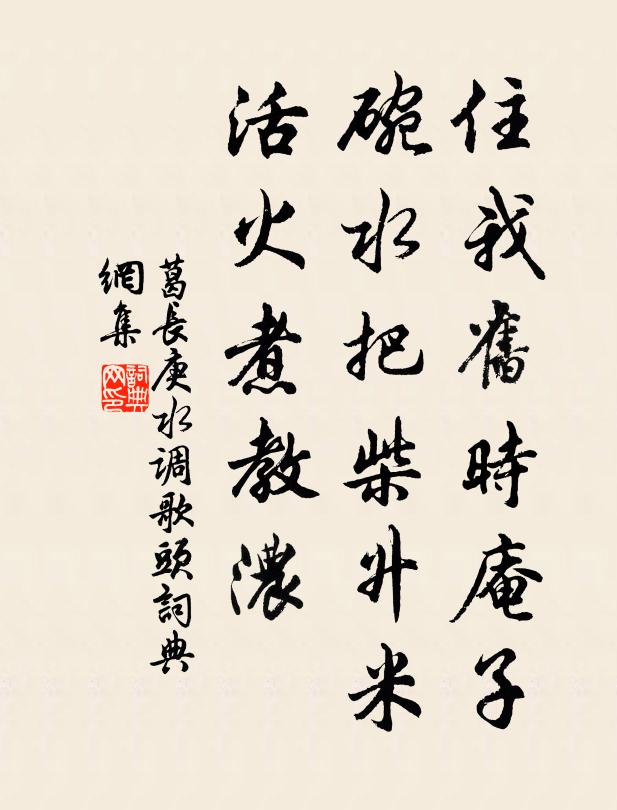 住我舊時庵子
碗水把柴升米
活火煮教濃
葛長庚水调歌頭詞典
網集
詞典
网印